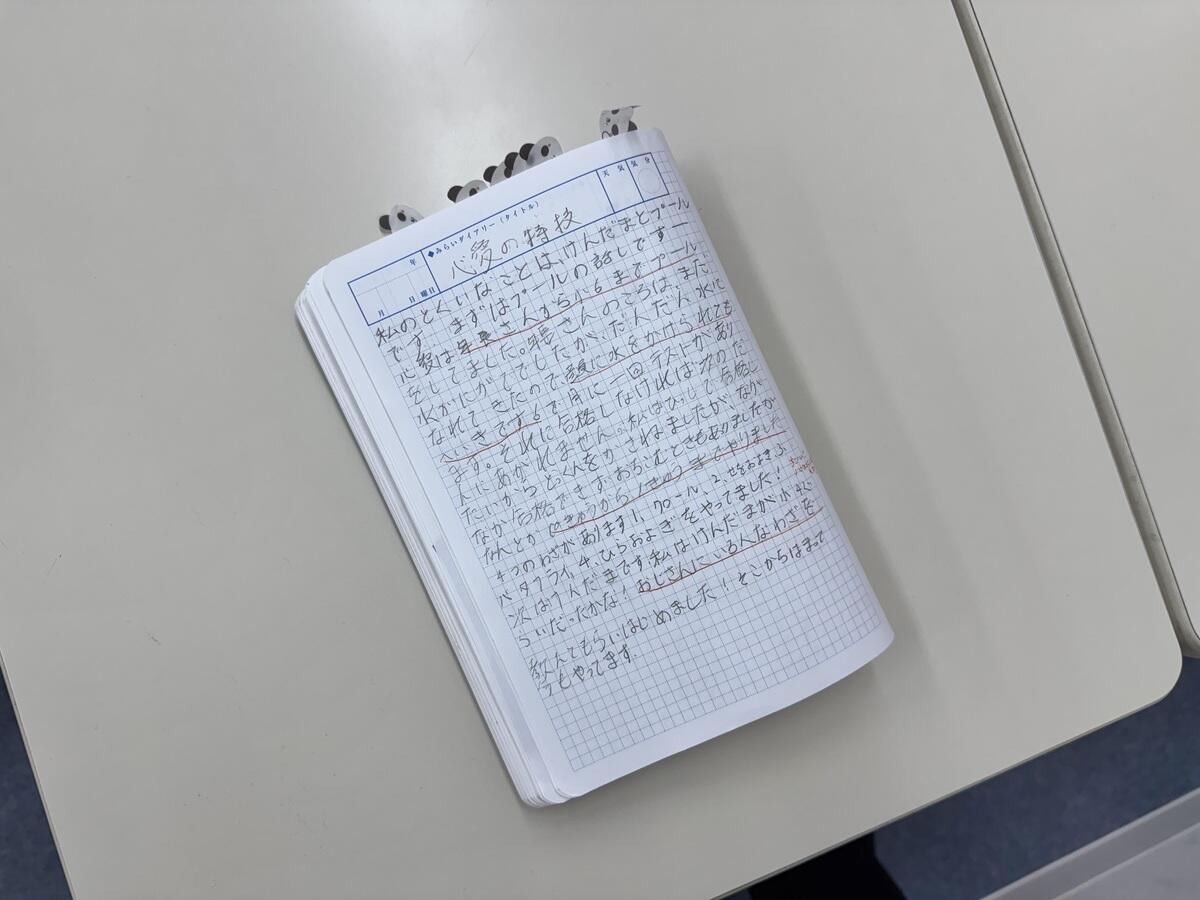 年 月 日 曜日
◆みらいダイアリー（タイトル）
天気 気分
心愛の特技
私のとくいなことは、けんだまとプール
です。まずはプールの話しです一
に愛は年長さんから小6までプール
をしてました。年長さんのころは、まだ
水がにがてでしたが、だんだん水に
なれてきたので、顔に水をかけられても
へいきです。6で月に一回テストがあり
ます。それに合格しなければ次のだ
んにあがれません。私はひっしで合格し
たいからとっくんをかさねましたがなか
なか合格できず、おちこむときもありましたが
なんとか きゅうから1きゅうまでやりました
4つのわざがあります1、クロール、2、せおよぎ、3、
バタフライ、4、ひらおよぎをやってました！
次はけんだまです。私はけんだまが小4ぐ
らいだったかな！おじさんにいろんなわざを
教えてもらいはじめました！そこからはまって
今もやってます